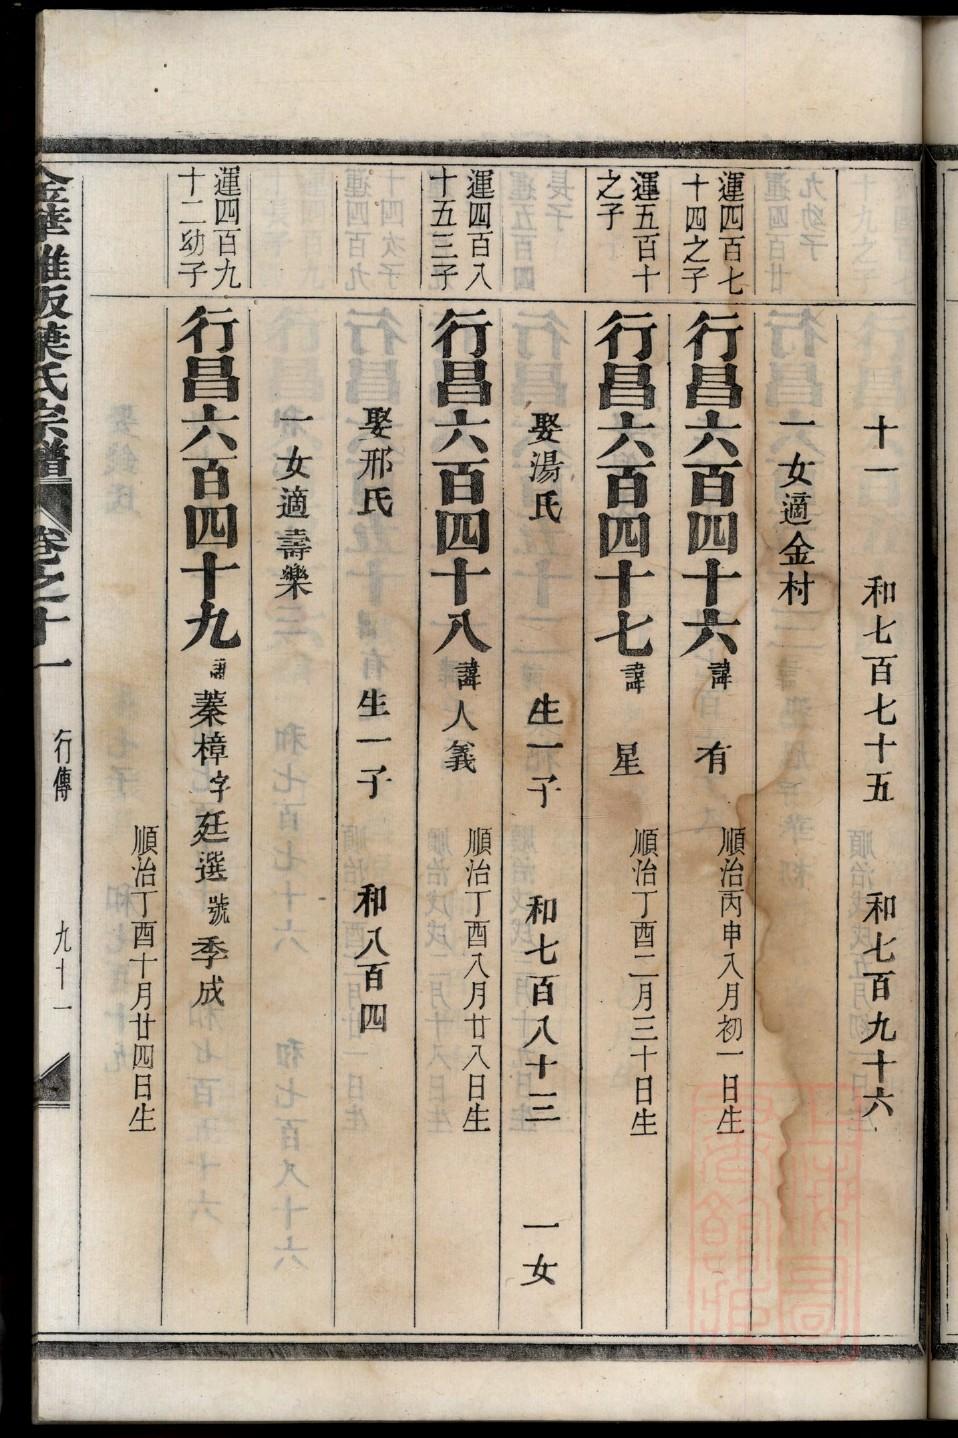 十一　和七百七十五　和七百九十六
一女適金村
運四百七
十四之子
行昌六百四十六　諱有　順治丙申八月初一日生
運五百十
之子
行昌六百四十七　諱星　順治丁酉二月三十日生
娶湯氏　生一子　和七百八十三　一女
運四百八
十五三子
行昌六百四十八　諱人義　順治丁酉八月廿八日生
娶邢氏　生一子　和八百四
一女適壽樂
運四百九
十二幼子
行昌六百四十九　諱蓁樟字廷選號季成　順治丁酉十月廿四日生
金華雅阪葉氏宗譜　卷之十一　行傳　九十一